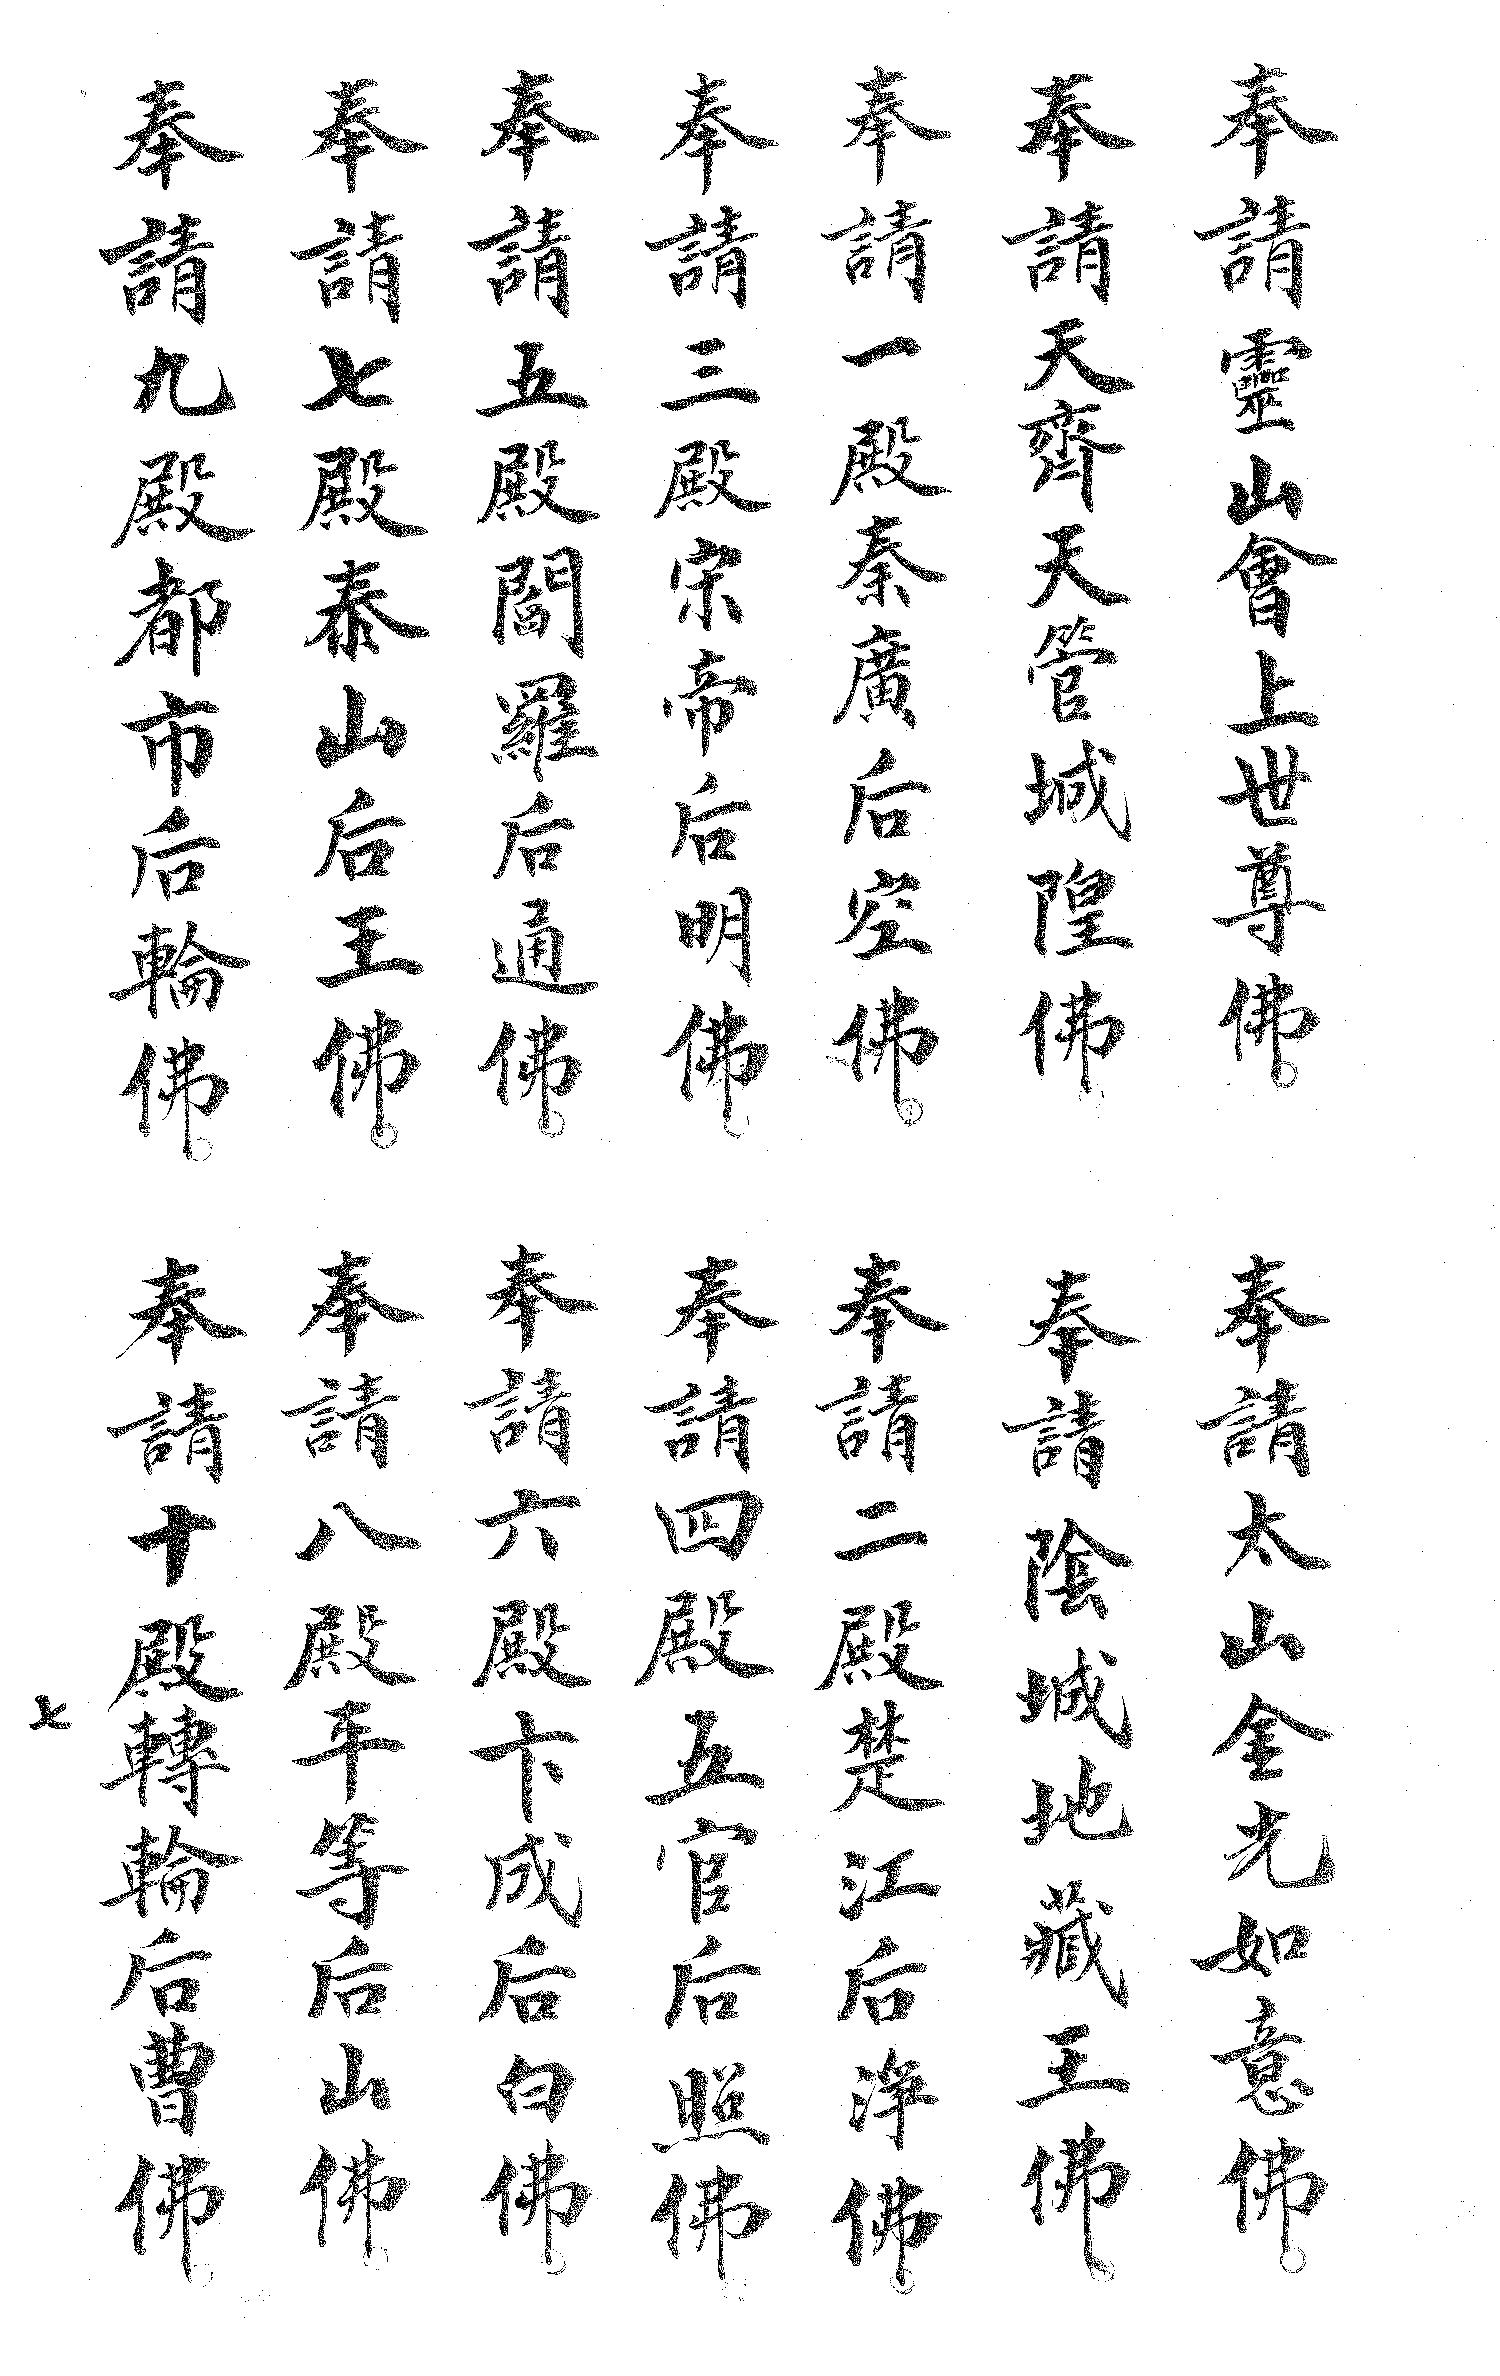 奉請靈山會上世尊佛。
奉請太山金光如意佛。
奉請天齊天管城隍佛
奉請陰城地藏王佛。
奉請一殿秦廣后空佛。
奉請二殿楚江后淨佛。
奉請三殿宗帝后明佛。
奉請四殿五官后照佛
奉請五殿閻羅后通佛。
奉請六殿卞成后白佛。
奉請七殿泰山后王佛。
奉請八殿平等后山佛。
奉請九殿都市后輪佛。
奉請十殿轉輪后曹佛。
七